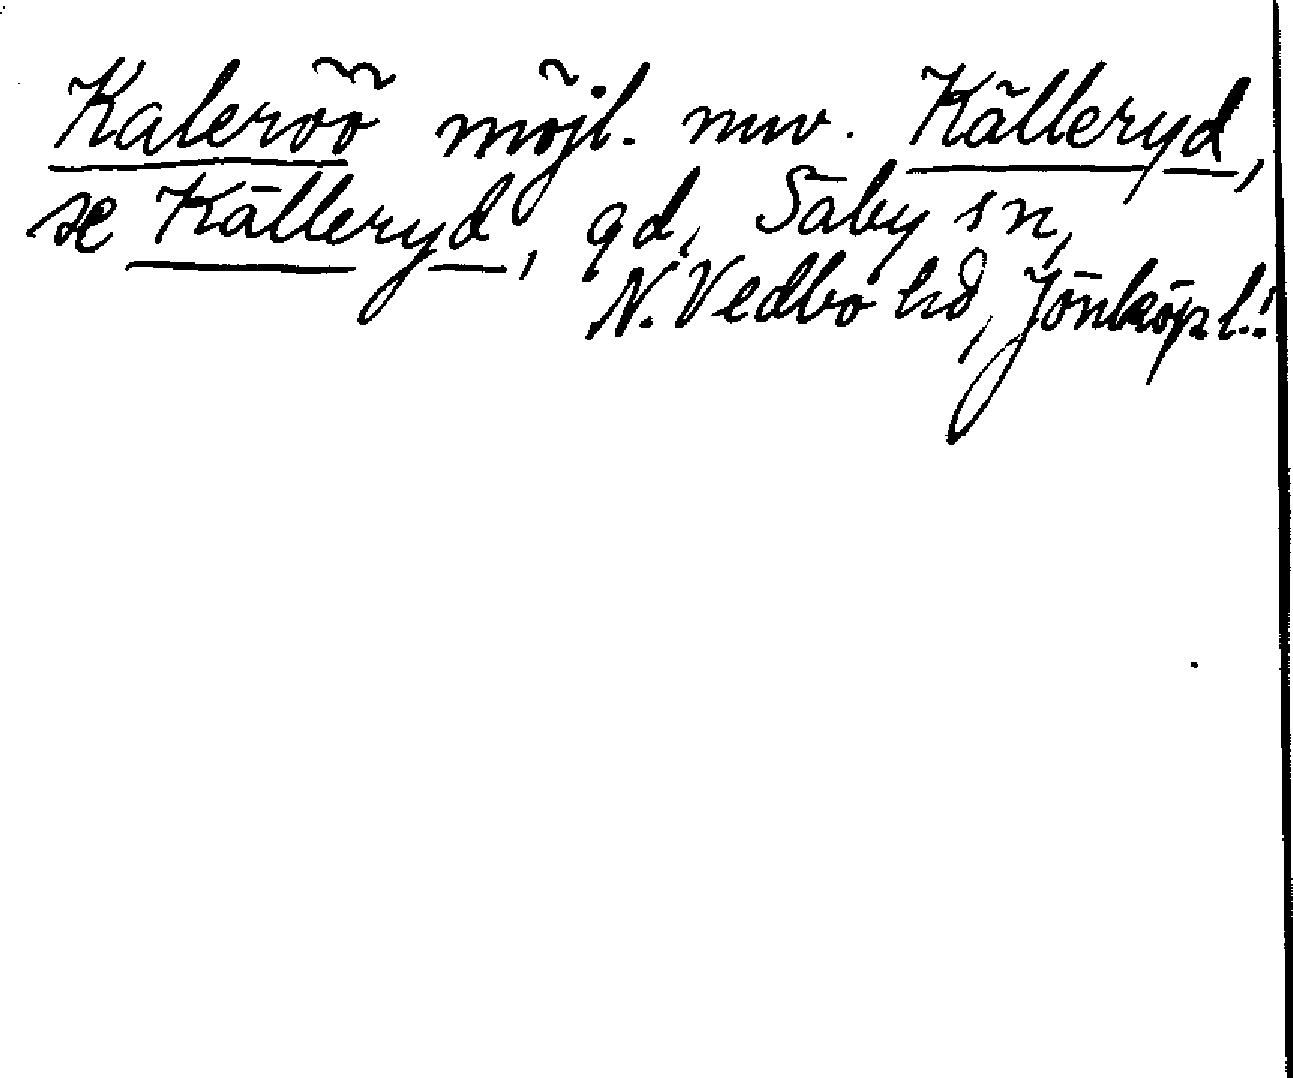 Kaleröö möjl. nuv. Källeryd,
se Källeryd, gd, Säby sn,
N. Vedbo hd, Jönköp l.!